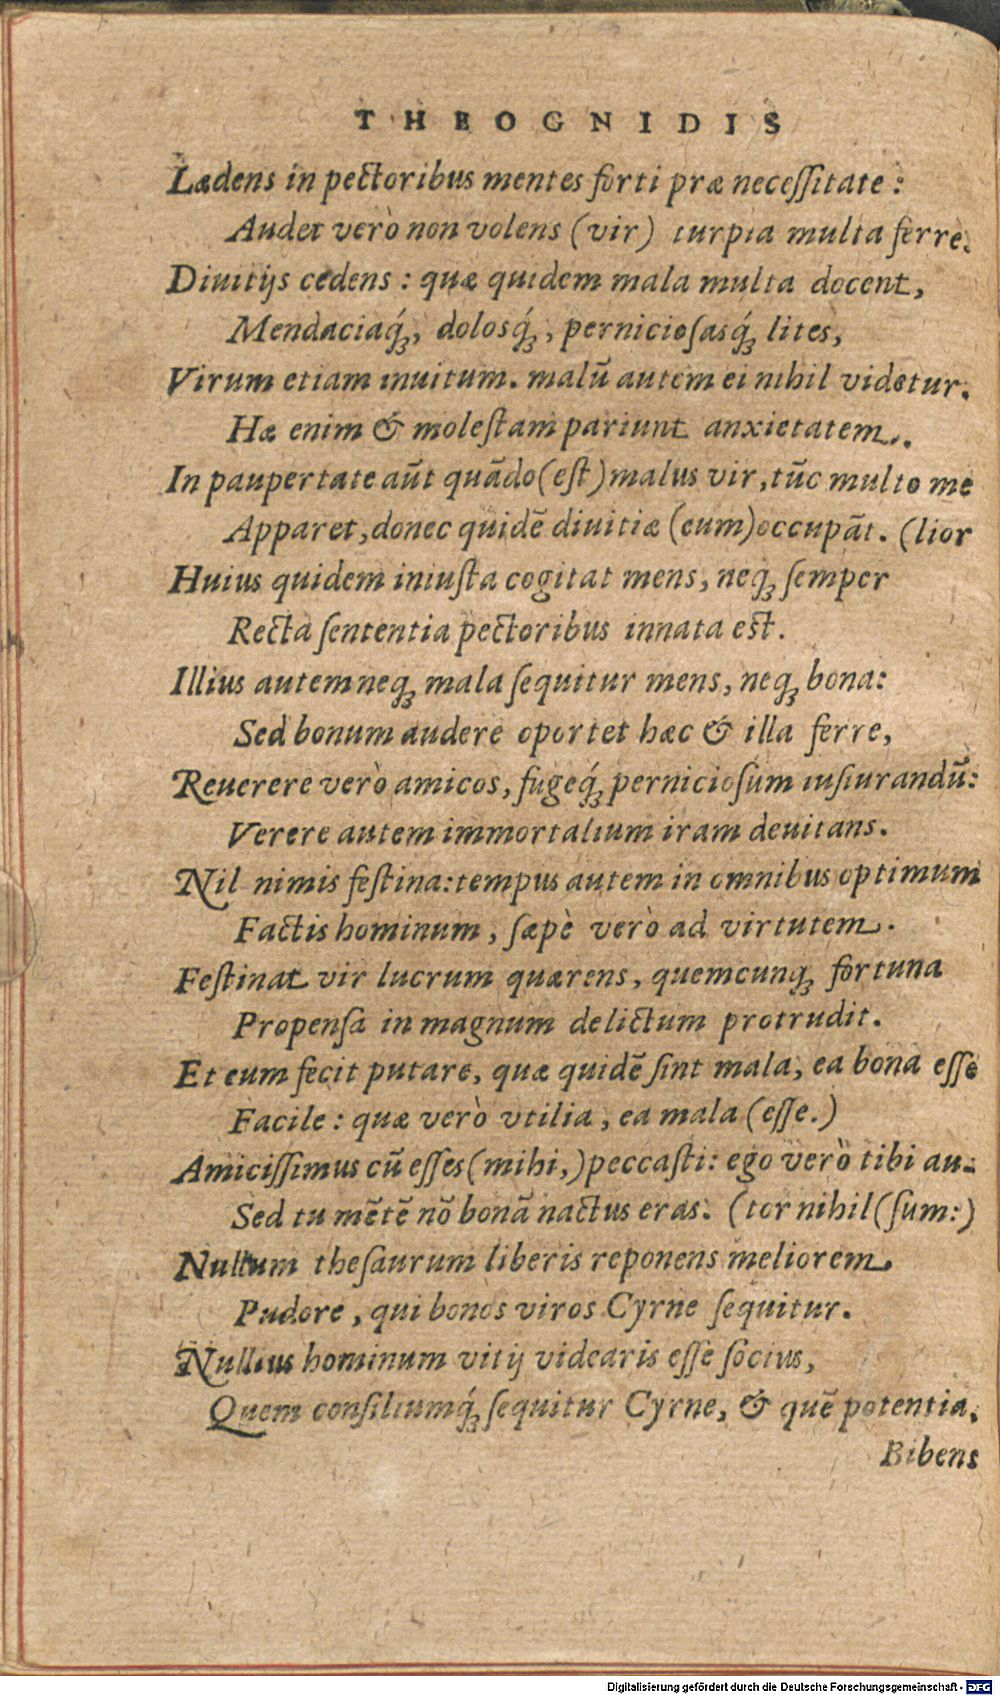 THEOGNIDIS
Lædens in pectoribus mentes forti præ neceſſitate :
Audet verò non volens (vir) turpia multa ferre.
Diuitijs cedens : quæ quidem mala multa docent,
Mendaciaq́ꝫ, dolosq́ꝫ, pernicioſasq́ꝫ lites,
Virum etiam inuitum. malũ autem ei nihil videtur.
Hæ enim & moleſtam pariunt anxietatem.
In paupertate aũt quãdo (eſt) malus vir, tũc multo me
Apparet, donec quidẽ diuitiæ (eum) occupãt. (lior
Huius quidem iniuſta cogitat mens, neqꝫ ſemper
Recta ſententia pectoribus innata eſt.
Illius autem neqꝫ mala ſequitur mens, neqꝫ bona:
Sed bonum audere oportet hæc & illa ferre,
Reuerere verò amicos, fugeq́ꝫ pernicioſum iuſiurandũ:
Verere autem immortalium iram deuitans.
Nil nimis feſtina: tempus autem in omnibus optimum
Factis hominum, ſæpè verò ad virtutem.
Feſtinat vir lucrum quærens, quemcunqꝫ fortuna
Propenſa in magnum delictum protrudit.
Et eum fecit putare, quæ quidẽ ſint mala, ea bona eſſe
Facile : quæ verò vtilia, ea mala (eſſe.)
Amiciſſimus cũ eſſes (mihi,) peccaſti: ego verò tibi au-
Sed tu mẽtẽ nõ bonã nactus eras. (tor nihil (ſum:)
Nullum theſaurum liberis reponens meliorem.
Pudore, qui bonos viros Cyrne ſequitur.
Nullius hominum vitij videaris eſſe ſocius,
Quem conſiliumq́ꝫ ſequitur Cyrne, & quẽ potentia.
Bibens
Digitalisierung gefördert durch die Deutsche Forschungsgemeinschaft - DFG